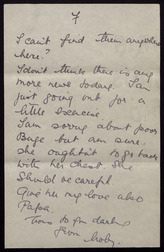 7
I can't find them anywhere
here?
I don't think there is any
more news today. I am
just going out for a
little exercise
I am sorry about poor
but am sure
she oughtn't to go
with her chest She
Should be careful
Give her my love also
Papa.
from